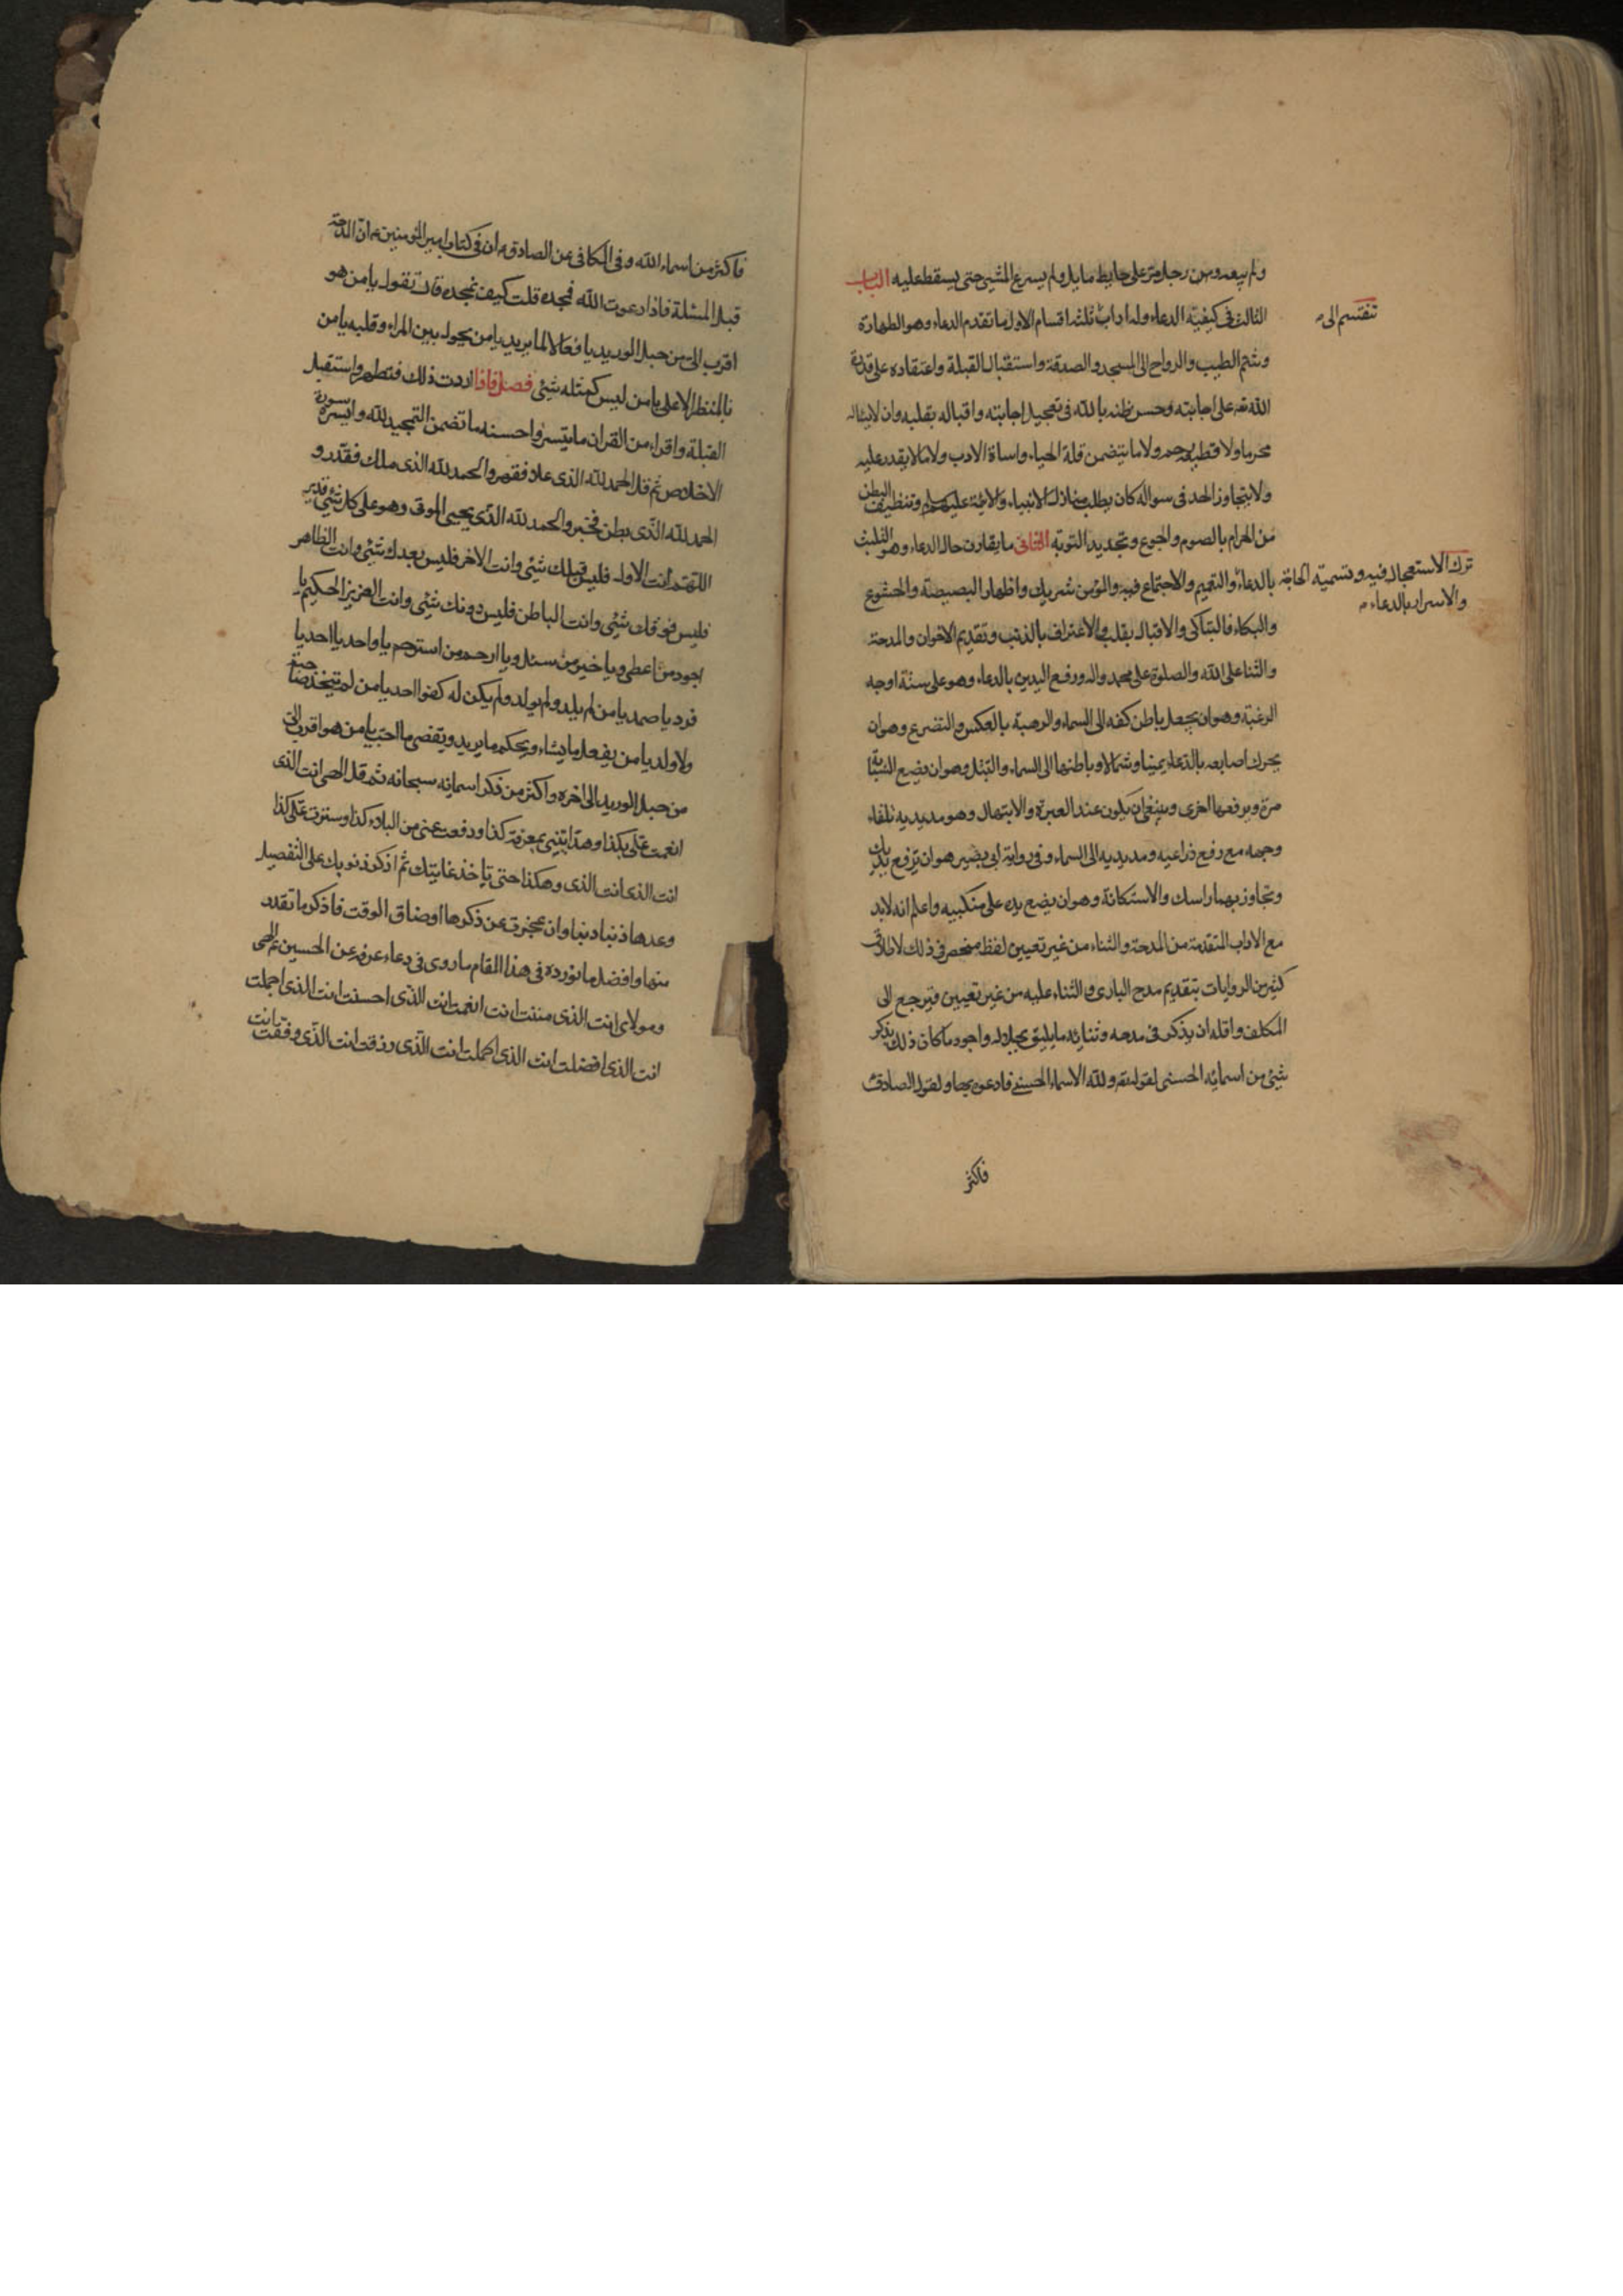 ولم يبعد ومن رجل مرّ على حايط مايل ولم يسرع المشي حتى يسقط عليه الباب
تنقسم الى
الثالث فى كيفية الدعاء وله اداب ثلثه اقسام الاول ما تقدم الدعاء وهو الطهارة
وشم الطيب والرواح الى المسجد والصدقة واستقبال القبلة واعتقاده على قدرة
الله تعه على اجابته وحسن ظنه بالله فى تعجيل اجابته واقباله بقلبه وان لا يسال
محرما ولا قطيعة رحم ولا ما يتضمن قلة الحياء واساة الادب ولا ما لا يقدر عليه
ولا يتجاوز الحد فى سواله كان يطلب منازل الانبياء والائمة عليهم وتنظيف البطن
من الحرام بالصوم والجوع وتجديد التوبة الثانى ما يقارن حال الدعاء وهو التلبث
ترك الاستعجال فيه وتسمية الحاجة
والاسرار بالدعاء
بالدعاء والتعميم والاجتماع فيه والمؤمن شريك واظهار البصبصة والخشوع
والبكاء فالتباكى والاقبال بقلبه والاعتراف بالذنب وتقديم الاخوان والمدحة
والثنا على الله والصلوة على محمد واله ورفع اليدين بالدعاء وهو على ستة اوجه
الرغبة وهو ان يجعل باطن كفه الى السماء والرهبة بالعكس والتضرع وهو ان
يحرك اصابعه بالدعاء يمينا وشمالا وباطنها الى السماء والتبتل وهو ان يضع السبابة
مرة ويرفعها اخرى وينبغى ان يكون عند العبرة والابتهال وهو مد يديه تلقاء
وجهه مع رفع ذراعيه ومد يديه الى السماء وفى رواية ابى بصير هو ان ترفع يديك
وتجاوز بهما راسك والاستكانة وهو ان يضع يده على منكبيه واعلم انه لا بد
مع الاداب المتقدمة من المدحة والثناء من غير تعيين لفظ منحصر فى ذلك لاطلاق
كثير من الروايات بتقديم مدح البارى والثناء عليه من غير تعيين فيرجع الى
المكلف واقله ان يذكر فى مدحه وثنائه ما يليق بجلاله واجود ما كان ذلك بذكر
شئ من اسمائه الحسنى لقوله تعه ولله الاسماء الحسنى فادعوه بها ولقول الصادق
فاكثر
فاكثر من اسماء الله وفى الكافى عن الصادق ان فى كتاب امير المؤمنين ان المدحة
قبل المسئلة فاذا دعوت الله فمجده قلت كيف نمجده قال تقول يا من هو
اقرب الىّ من حبل الوريد يا فعالا لما يريد يا من يحول بين المرء وقلبه يا من
بالمنظر الاعلى يا من ليس كمثله شئ فصل فاذا اردت ذلك فتطهر واستقبل
القبلة واقراء من القران ما تيسر واحسنه ما تضمن التمجيد لله وايسره سورة
الاخلاص ثم قل الحمد لله الذى علا فقهر والحمد لله الذى ملك فقدر و
الحمد لله الذى بطن فخبر والحمد لله الذى يحيى الموتى وهو على كل شئ قدير
اللهم انت الاول فليس قبلك شئ وانت الاخر فليس بعدك شئ وانت الظاهر
فليس فوقك شئ وانت الباطن فليس دونك شئ وانت العزيز الحكيم يا
اجود من اعطى ويا خير من سئل ويا ارحم من استرحم يا واحد يا احد يا
فرد يا صمد يا من لم يلد ولم يولد ولم يكن له كفوا احد يا من لم يتخذ صاحبة
ولا ولد يا من يفعل ما يشاء ويحكم ما يريد ويقضى ما احب يا من هو اقرب الىّ
من حبل الوريد الى اخره واكثر من ذكر اسمائه سبحانه ثم قل الهى انت الذى
انعمت علىّ بكذا وهديتنى بمعرفة كذا ودفعت عنى من البلاء كذا وسترت علىّ كذا
انت الذى انت الذى وهكذا حتى تاخذ غايتك ثم اذكر ذنوبك على التفصيل
وعدها ذنبا ذنبا وان عجزت عن ذكرها او ضاق الوقت فاذكر ما تقدر
منها وافضل ما نورده فى هذا المقام ما روى فى دعاء عرفه عن الحسين ع الهى
ومولاى انت الذى مننت انت انعمت انت الذى احسنت انت الذى اجملت
انت الذى افضلت انت الذى اكملت انت الذى رزقت انت الذى وفقت انت